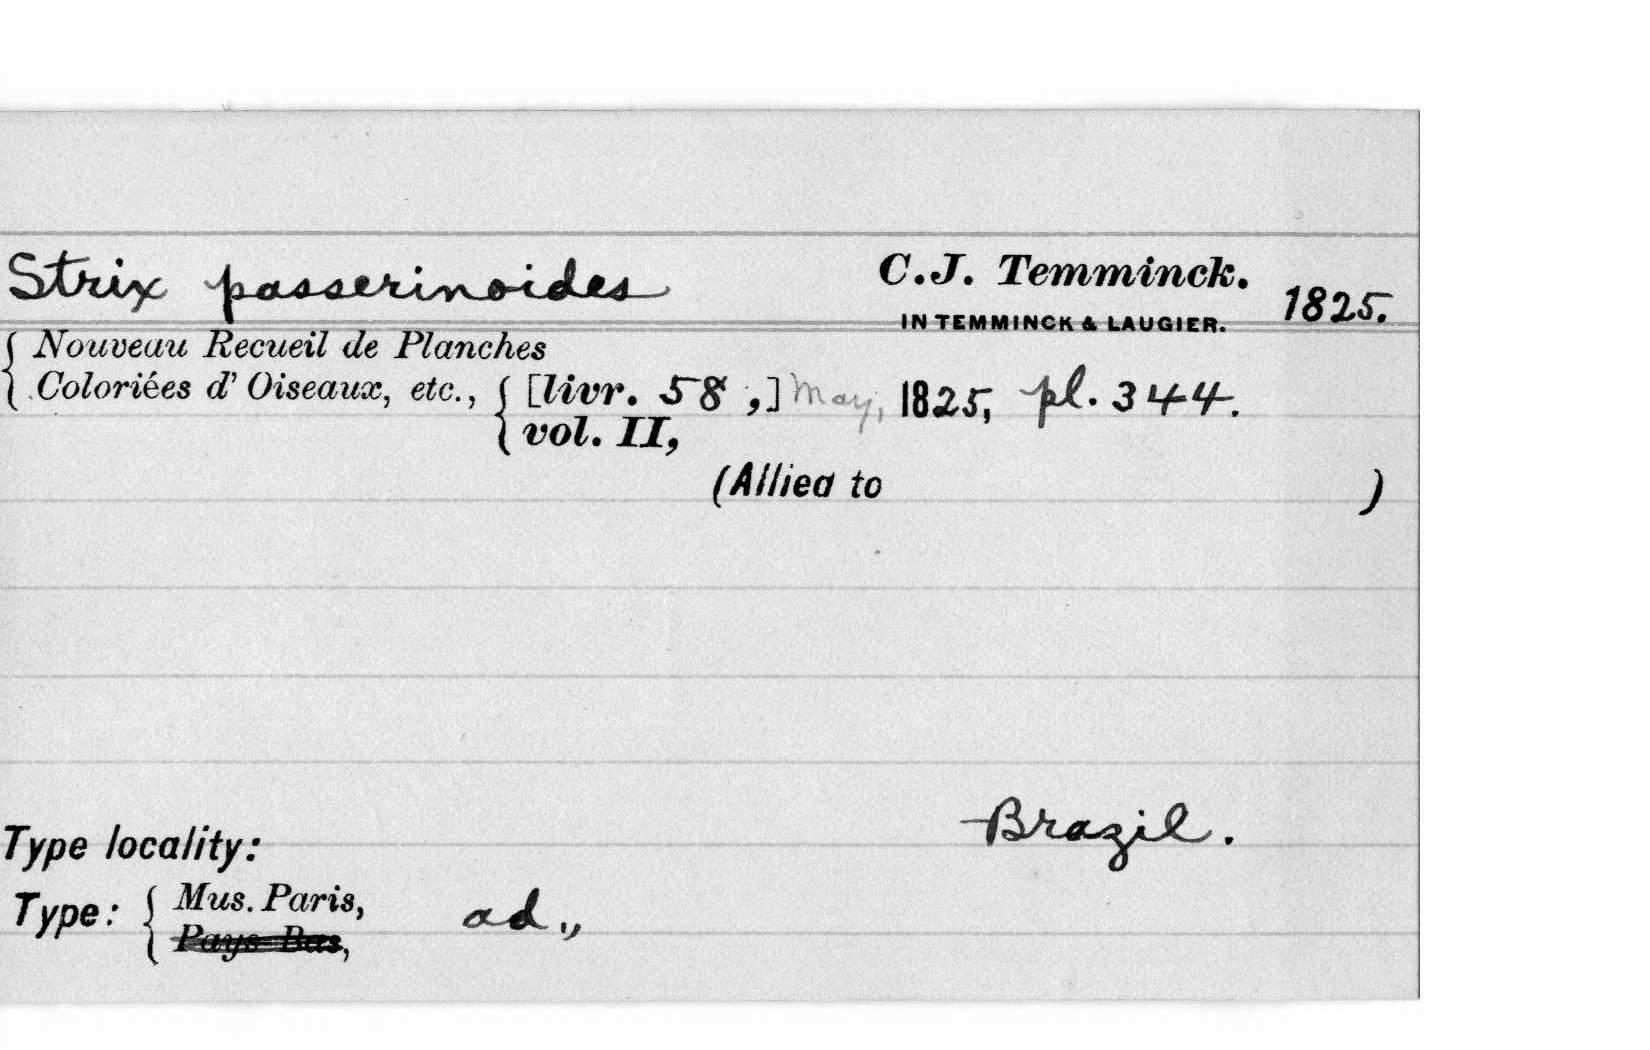 Strix passerinoides C.J. Temminck. 1825.
IN TEMMINCK & LAUGIER.
Nouveau Recueil de Planches
Coloriées d' Oiseaux, etc., [livr. 58 ,] May, 1825, pl. 344.
vol. II,
(Allied to )
Brazil.
Type locality:
Type: Mus. Paris, ad.,
Pays-Bas,